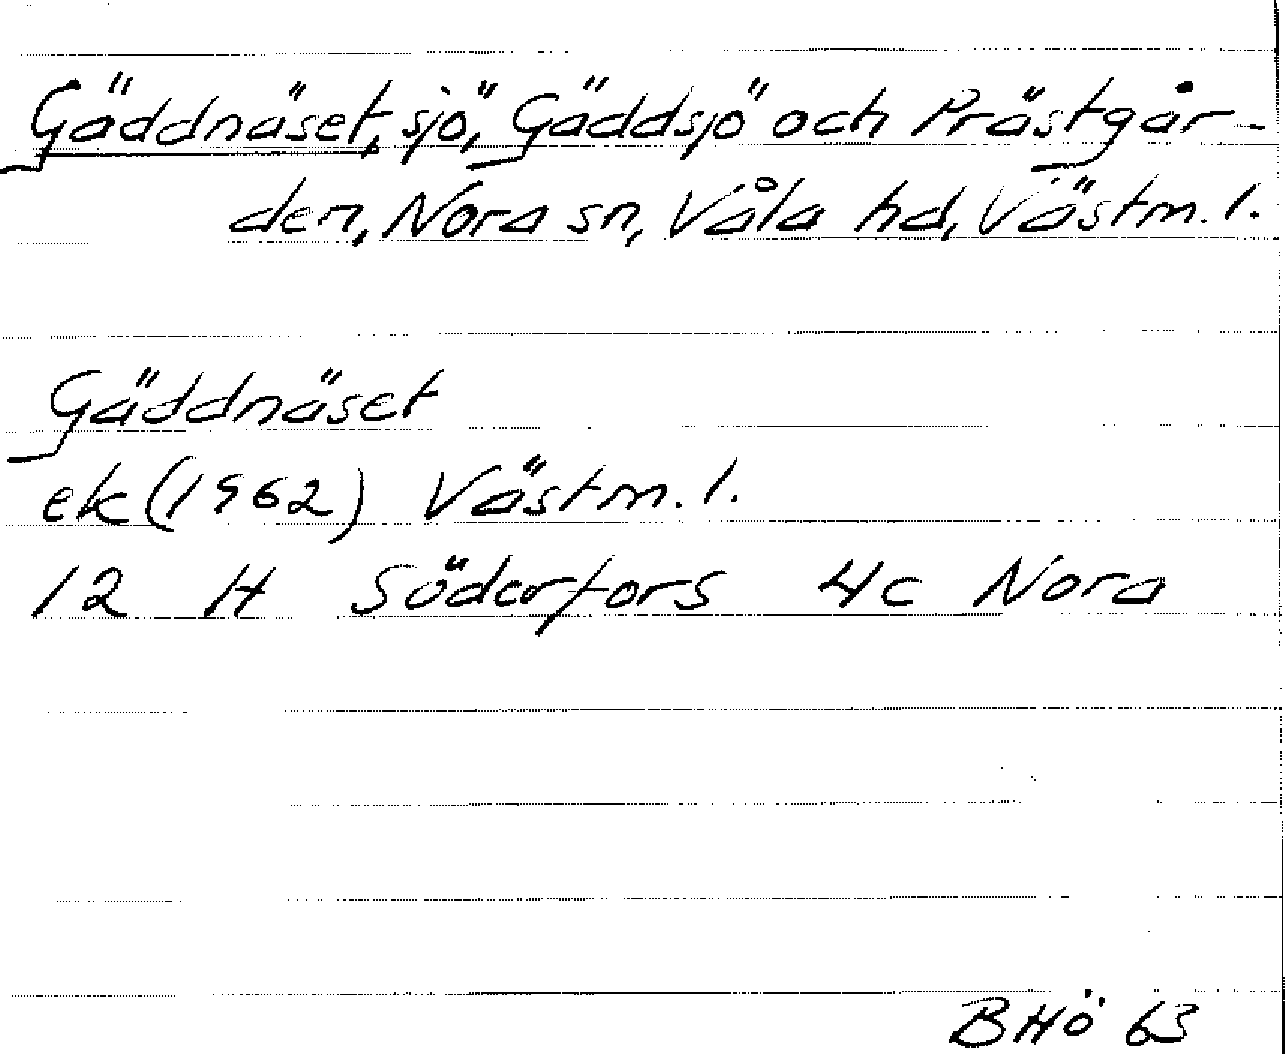 Gäddnäset, sjö, Gäddsjö och Prästgår-
den, Nora sn, Våla hd, Västm. l.
Gäddnäset
ek (1962) Västm. l.
12 H Söderfors 4c Nora
BHÖ 63